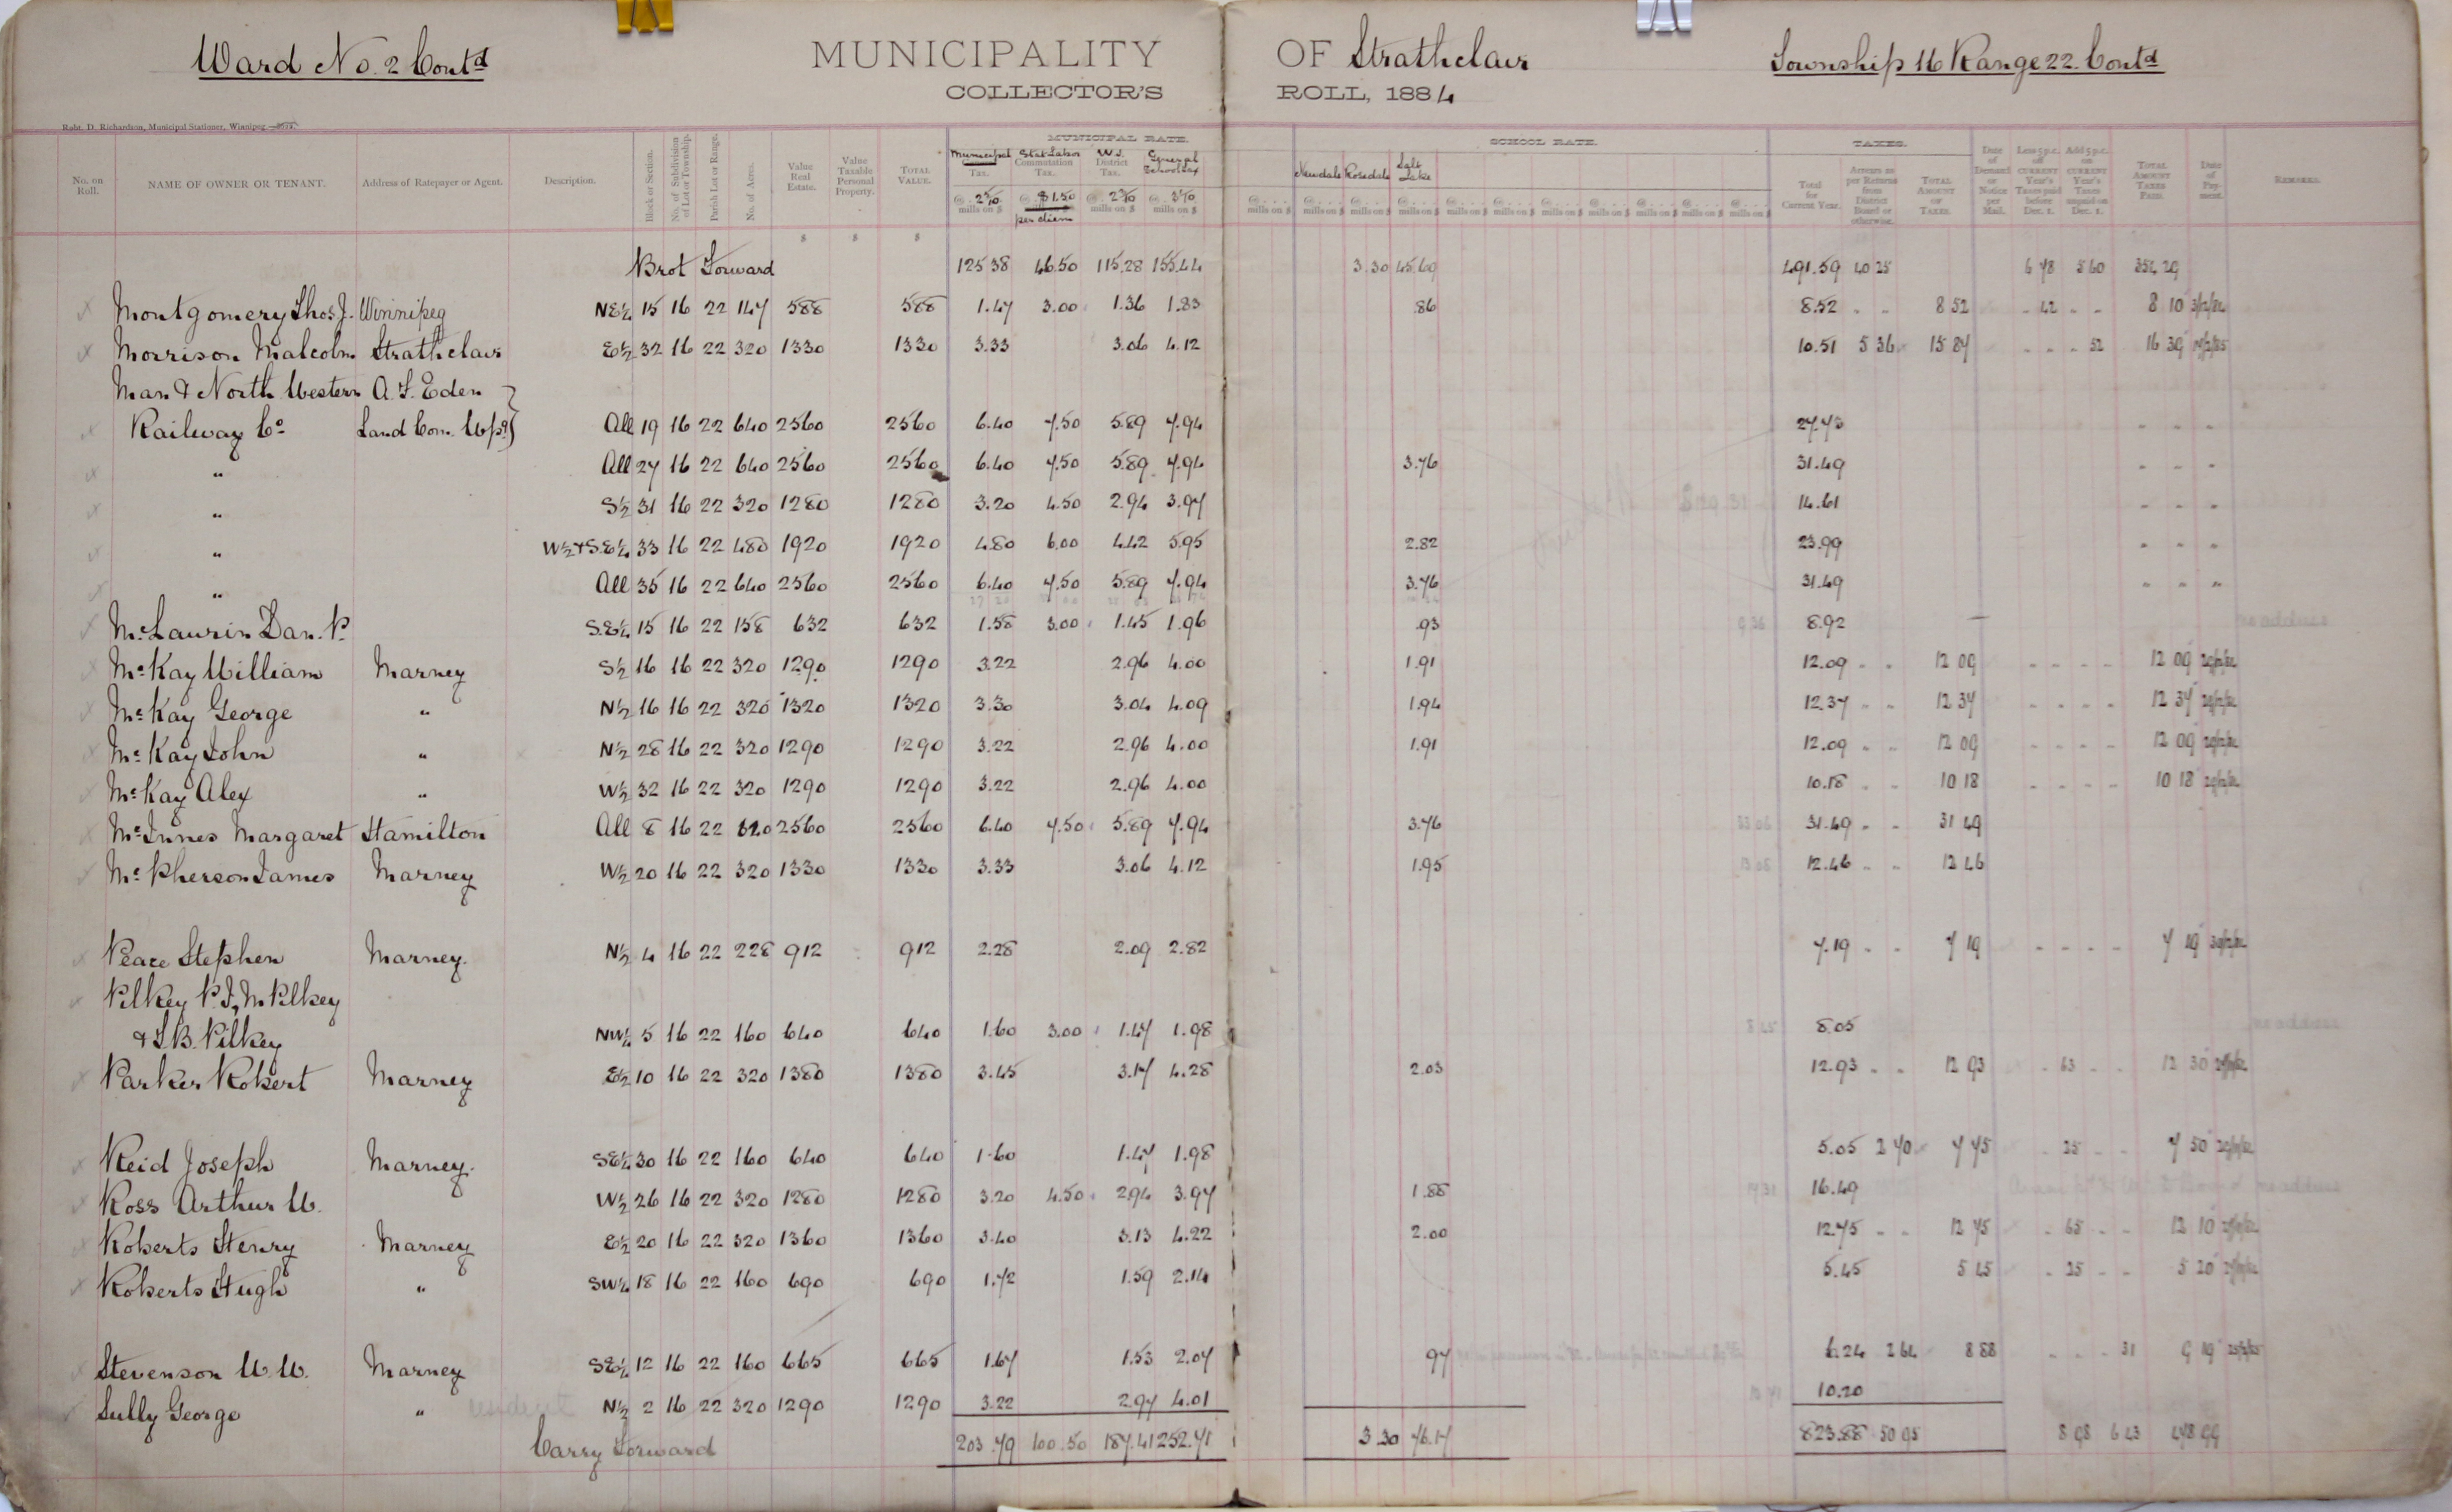 Ward No. 2 Contd MUNICIPALITY OF Strathclair Township 16 Range 22. Contd
COLLECTOR'S ROLL, 1884
Robt. D. Richardson, Municipal Stationer, Winnipeg.
MUNICIPAL RATE. SCHOOL RATE. TAXES.
No. on Roll. NAME OF OWNER OR TENANT. Address of Ratepayer or Agent. Description. Block or Section. No. of Subdivision of Lot or Township. Parish Lot or Range. No. of Acres. Value Real Estate. Value Taxable Personal Property. TOTAL VALUE. Municipal Tax. Stat Labor Commutation Tax. W.J. District Tax. General School Tax Newdale Rosedale Salt Lake Total for Current Year. Arrears as per Returns from District Board or otherwise. TOTAL AMOUNT OF TAXES. Date of Demand or Notice per Mail. Less 5 p.c. off CURRENT Year's Taxes paid before Dec. 1. Add 5 p.c. on CURRENT Year's Taxes unpaid on Dec. 1. TOTAL AMOUNT TAXES PAID. Date of Payment. REMARKS.
mills on $ $1.50 per diem mills on $ mills on $ mills on $ mills on $ mills on $ mills on $ mills on $ mills on $ mills on $ mills on $ mills on $ mills on $ mills on $
$ $ $
Brot Forward 125 38 46.50 115.28 155.44 3.30 45.69 491.59 40 25 6 78 5 60 354 29
Montgomery Thos J. Winnipeg NE¼ 15 16 22 147 588 588 1.47 3.00 1.36 1.83 .86 8.52 8 52 42 8 10 3/12/84
Morrison Malcolm Strathclair E½ 32 16 22 320 1330 1330 3.33 3.06 4.12 10.51 5 36 15 87 52 16 39
Man & North Western A. F. Eden
Railway Co Land Com. Wpg All 19 16 22 640 2560 2560 6.40 7.50 5.89 7.94 27.73
" All 27 16 22 640 2560 2560 6.40 7.50 5.89 7.94 3.76 31.49
" S½ 31 16 22 320 1280 1280 3.20 4.50 2.94 3.97 14.61
" W½ & S.E¼ 33 16 22 480 1920 1920 4.80 6.00 4.42 5.95 2.82 23.99
" All 35 16 22 640 2560 2560 6.40 7.50 5.89 7.94 3.76 31.49
McLaurin Dan. P. S.E¼ 15 16 22 158 632 632 1.58 3.00 1.45 1.96 .93 8.92
McKay William Marney S½ 16 16 22 320 1290 1290 3.22 2.96 4.00 1.91 12.09 12 09 12 09
McKay George " N½ 16 16 22 320 1320 1320 3.30 3.04 4.09 1.94 12.37 12 37 12 37
McKay John " N½ 28 16 22 320 1290 1290 3.22 2.96 4.00 1.91 12.09 12 09 12 09
McKay Alex " W½ 32 16 22 320 1290 1290 3.22 2.96 4.00 10.18 10 18 10 18
McInnes Margaret Hamilton All 8 16 22 640 2560 2560 6.40 7.50 5.89 7.94 3.76 31.49 31 49
McPherson James Marney W½ 20 16 22 320 1330 1330 3.33 3.06 4.12 1.95 12.46 12 46
Peace Stephen Marney. N½ 4 16 22 228 912 912 2.28 2.09 2.82 7.19 7 19 7 19
Pilkey P. J, M Pilkey
& S.B. Pilkey NW¼ 5 16 22 160 640 640 1.60 3.00 1.47 1.98 8.05
Parker Robert Marney E½ 10 16 22 320 1380 1380 3.45 3.17 4.28 2.03 12.93 12 93 63 12 30
Reid Joseph Marney. SE¼ 30 16 22 160 640 640 1.60 1.47 1.98 5.05 2 70 7 75 25 7 50
Ross Arthur W. W½ 26 16 22 320 1280 1280 3.20 4.50 2.94 3.97 1.88 16.49
Roberts Henry Marney E½ 20 16 22 320 1360 1360 3.40 3.13 4.22 2.00 12.75 12 75 65 12 10
Roberts Hugh " SW¼ 18 16 22 160 690 690 1.72 1.59 2.14 5.45 5 45 25 5 20
Stevenson W. W. Marney SE¼ 12 16 22 160 665 665 1.67 1.53 2.07 97 6.24 2 64 8 88 31 9 19
Sully George " N½ 2 16 22 320 1290 1290 3.22 2.97 4.01 10.20
Carry Forward 203.79 100.50 187.41 252.71 3.30 76.17 823.88 50 95 8 98 6 43 478 99